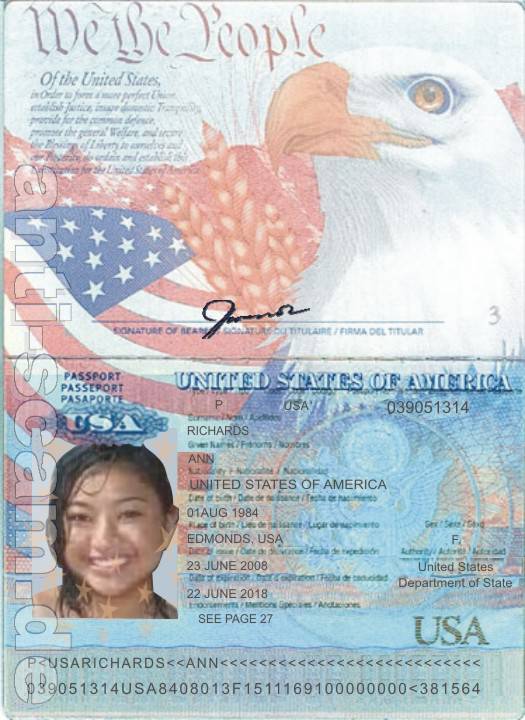 We the People
Of the United States,
in Order to form a more perfect Union,
establish Justice, insure domestic Tranquility,
provide for the common defence,
promote the general Welfare, and secure
the Blessings of Liberty to ourselves and
our Posterity, do ordain and establish this
Constitution for the United States of America
anti-scam.de
3
SIGNATURE OF BEARER / SIGNATURE DU TITULAIRE / FIRMA DEL TITULAR
PASSPORT
PASSEPORT
PASAPORTE
USA
UNITED STATES OF AMERICA
P USA 039051314
RICHARDS
Given Names / Prénoms / Nombres
ANN
Nationality / Nationalité / Nacionalidad
UNITED STATES OF AMERICA
Date of birth / Date de naissance / Fecha de nacimiento
01AUG 1984
Place of birth / Lieu de naissance / Lugar de nacimiento Sex / Sexe / Sexo
EDMONDS, USA F.
Date of issue / Date de délivrance / Fecha de expedición Authority / Autorité / Autoridad
23 JUNE 2008 United States
Date of expiration / Date d'expiration / Fecha de caducidad Department of State
22 JUNE 2018
Endorsements / Mentions Spéciales / Anotaciones
SEE PAGE 27
USA
P<USARICHARDS<<ANN<<<<<<<<<<<<<<<<<<<<<<<<<<<<
039051314USA8408013F1511169100000000<381564